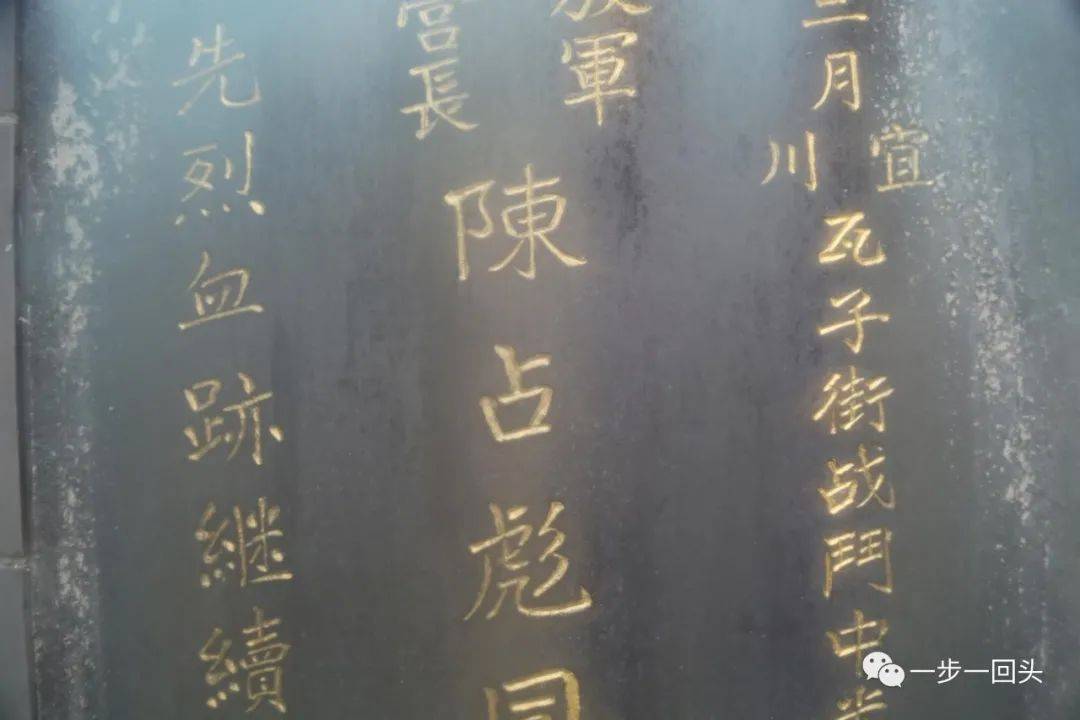 三月宜川瓦子街战鬥中光
放軍
营長
陳占彪同
先烈血跡継續
一步一回头